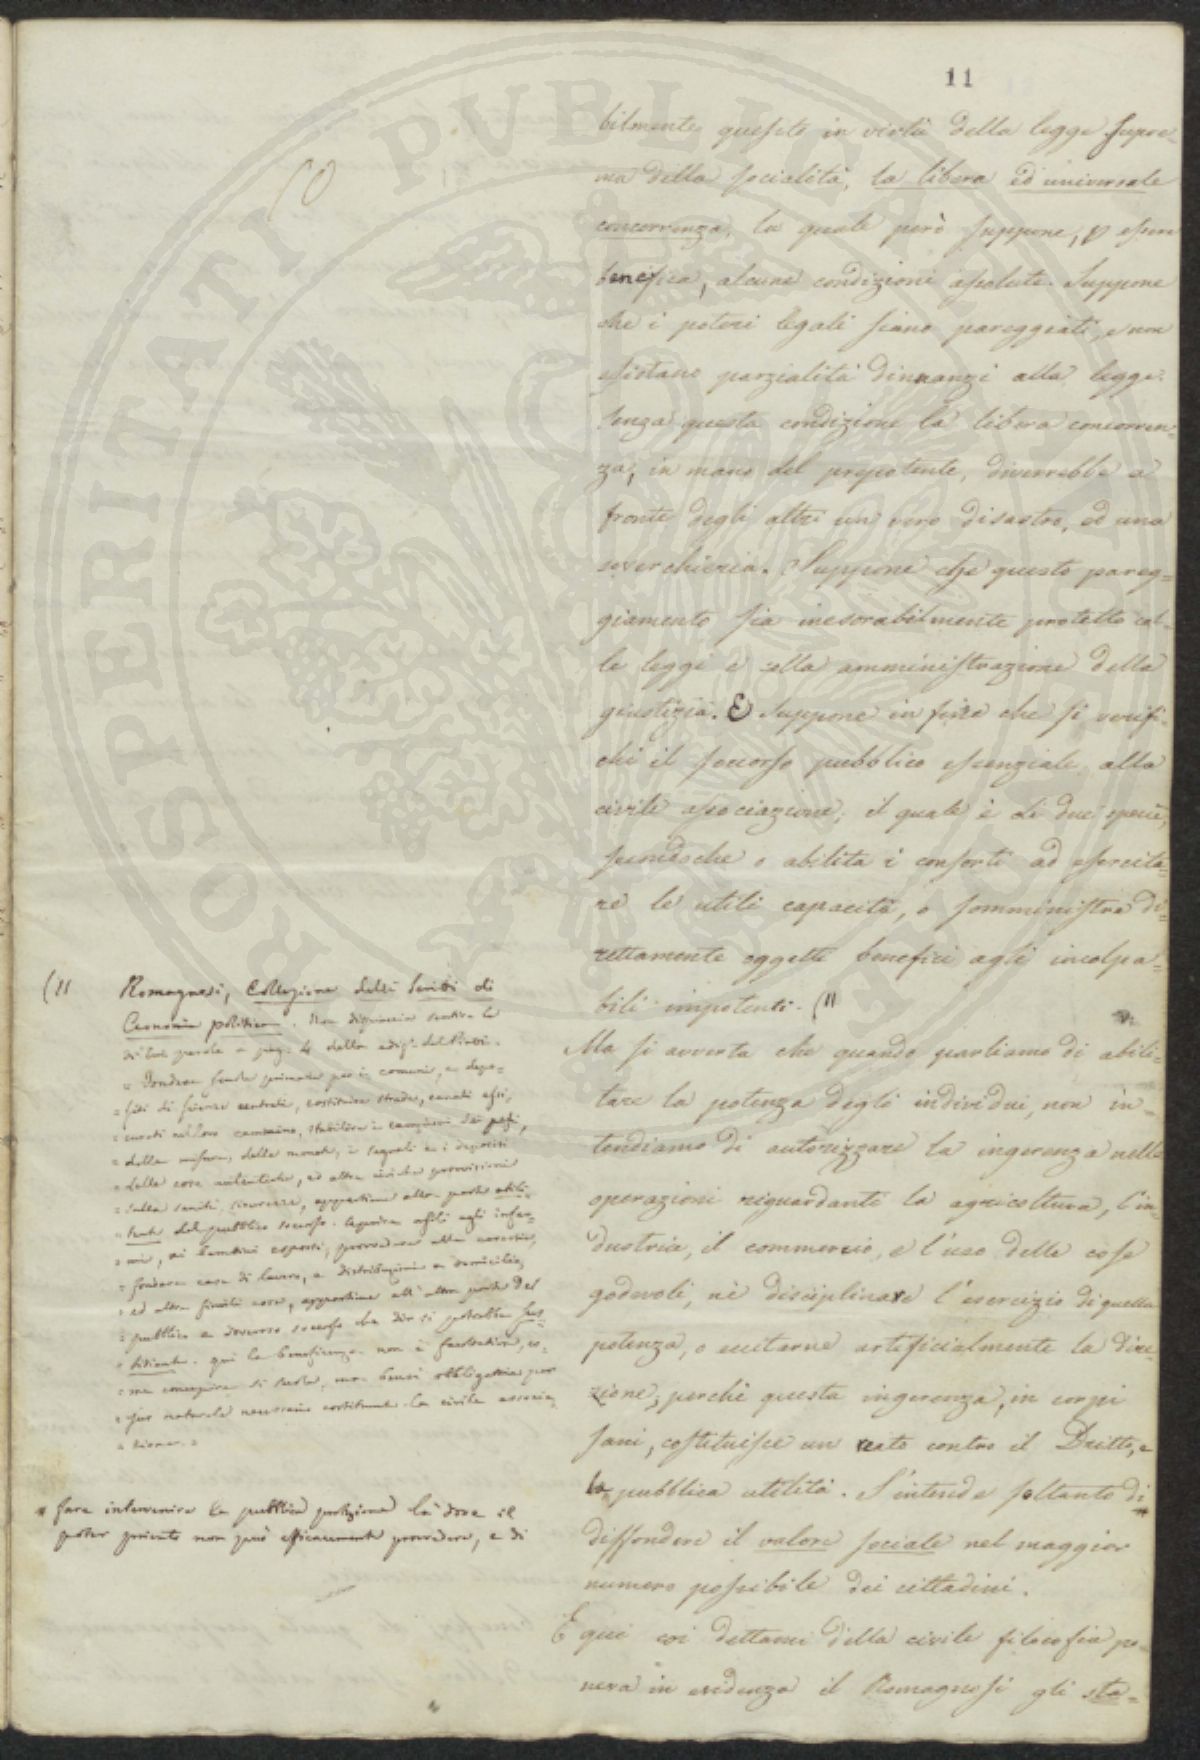 11
10
bilmente questo in virtù della legge supre-
ma della socialità, la libera ed universale
concorrenza, la quale però suppone, p essere
benefica, alcune condizioni assolute. Suppone
che i poteri legali siano pareggiati, e non
esistano parzialità dinnanzi alla legge.
Senza questa condizione la libera concorren-
za, in mano del prepotente, diverrebbe a
fronte degli altri un vero disastro, ed una
soverchieria. Suppone che questo pareg-
giamento sia inesorabilmente protetto col-
le leggi e colla amministrazione della
giustizia. E suppone in fine che si verifi-
chi il soccorso pubblico essenziale alla
civile associazione; il quale è di due specie,
secondoche o abilita i consorti ad esercita-
re le utili capacità, o somministra di-
rettamente oggetti benefici agli incolpa-
bili impotenti. (11
Ma si avverta che quando parliamo di abili-
tare la potenza degli individui, non in-
tendiamo di autorizzare la ingerenza nelle
operazioni riguardanti la agricoltura, l'in-
dustria, il commercio, e l'uso delle cose
godevoli, nè disciplinare l'esercizio di quella
potenza, o eccitarne artificialmente la dire-
zione; perchè questa ingerenza, in corpi
sani, costituisce un reato contro il Dritto, e
la pubblica utilità. S'intende soltanto di
diffondere il valore sociale nel maggior
numero possibile dei cittadini.
E qui coi dettami della civile filosofia po-
neva in evidenza il Romagnosi gli sta-
(11 Romagnosi, Collezione delli Scritti di
Economia politica. Non dispiaccia sentire le
di lui parole a pag. 4 della ediz. del Piatti.
" Fondare scuole primarie per i comuni, e depo-
" siti di scienze centrali, costituire strade, canali essi,
" curati nel loro cammino, stabilire i campioni dei pesi,
" delle misure, delle monete, i segnali e i depositi
" delle cose autentiche, ed altre simili provvisioni
" sulla sanità, sicurezza, appartiene alla parte abili-
" tante del pubblico soccorso. Aprire asili agli infer-
" mi, ai bambini esposti, provvedere alle carestie,
" fondare case di lavoro, e distribuzioni a domicilio,
" ed altre simili cose, appartiene all'altra parte del
" pubblico e doveroso soccorso che dir si potrebbe sus-
" sidiante. qui la beneficenza non è facoltativa, co-
" me comunemente si suole, ma bensì obbligatoria per
" jus naturale necessario costituente la civile associa-
" zione. "
* fare intervenire la pubblica protezione là dove il
poter privato non può efficacemente provvedere, e di